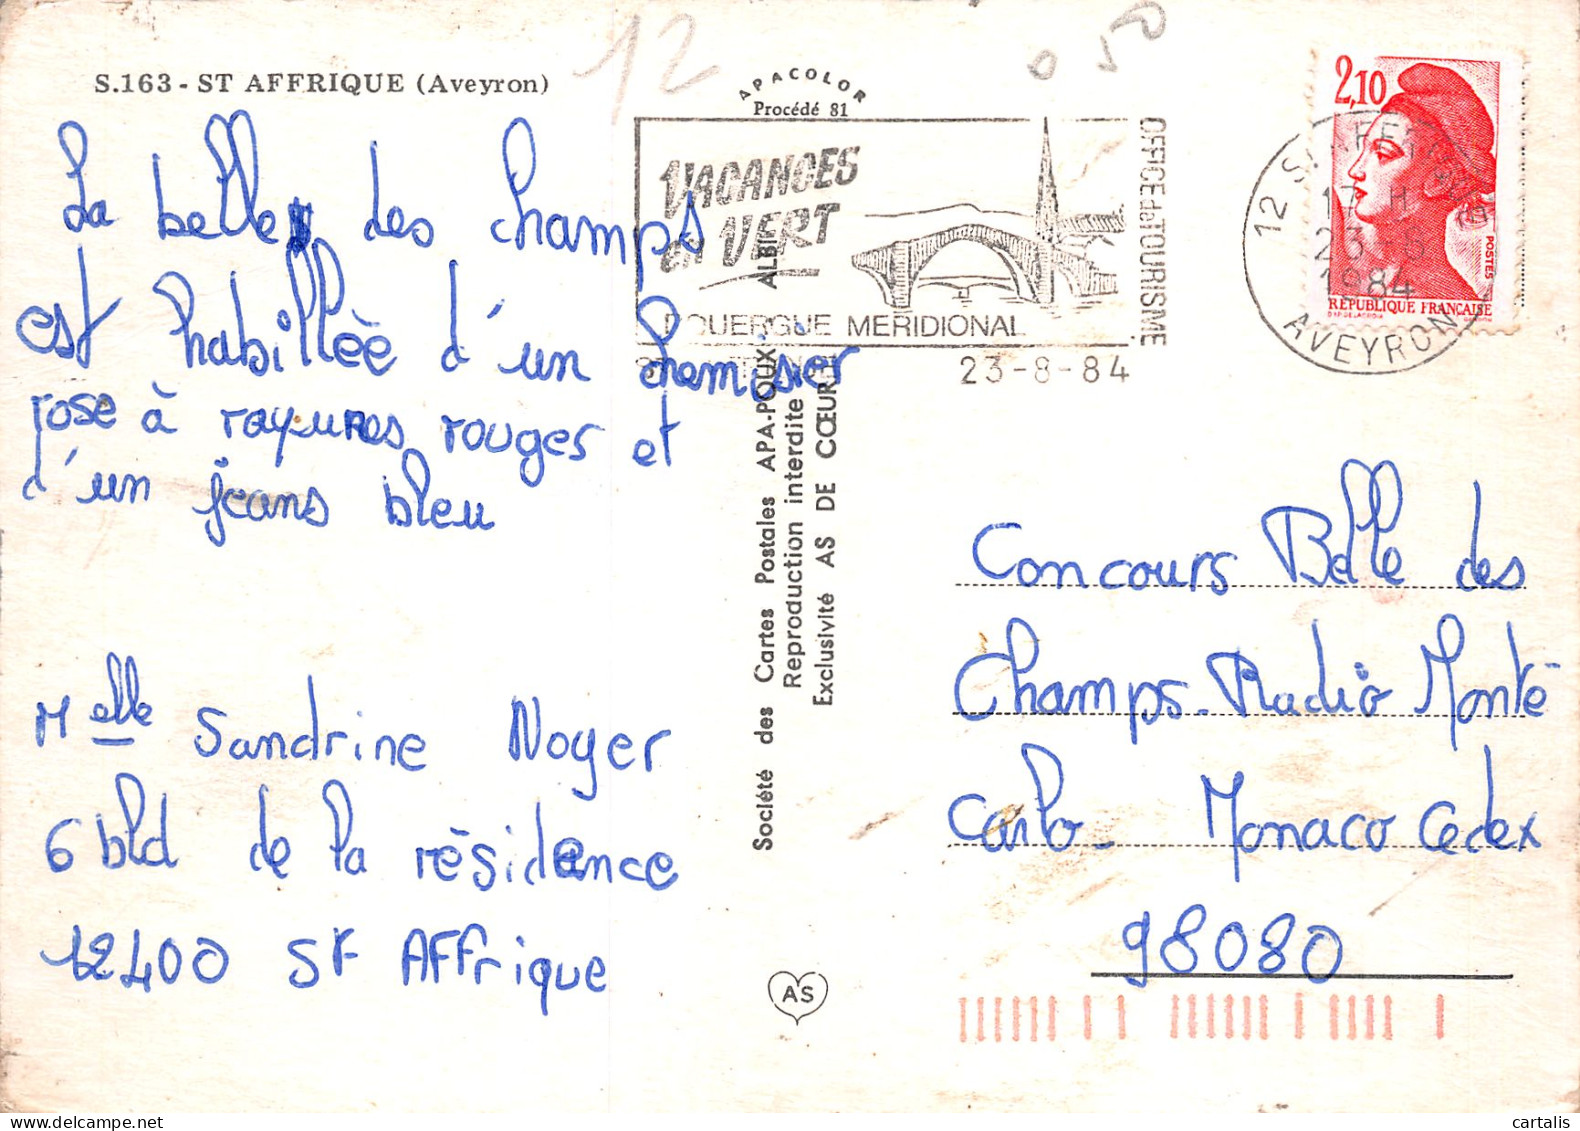 12
0 50
S.163 - ST AFFRIQUE (Aveyron)
APACOLOR
Procédé 81
La belle des champs
est habillèe d'un chemisier
rose à rayures rouges et
d'un jeans bleu
Melle Sandrine Noyer
6 bld de la rèsidence
12400 St Affrique
VACANCES
en VERT
ROUERGUE MERIDIONAL
OFFICE de TOURISME
23-8-84
2,10
RÉPUBLIQUE FRANÇAISE
POSTES
12 ST AFFRIQUE
17 H
23-8
1984
AVEYRON
Société des Cartes Postales APA-POUX ALBI
Reproduction interdite
Exclusivité AS DE CŒUR
AS
Concours Belle des
Champs-Radio Monté
Carlo- Monaco Cedex
98080
cartalis